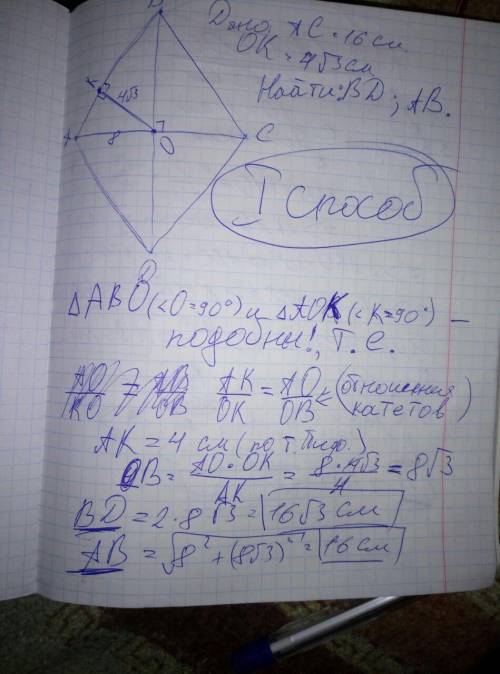 Дано, AC = 16 см
OK = 4√3 см
Найти: BD; AB.
B
K
4√3
A
8
O
C
D
I способ
△ABO (<O=90°) и △AOK (<K=90°) —
подобны!, т.е.
AO/KO = AB/OB AK/OK = AO/OB (отношения катетов)
AK = 4 см (по т. Пиф.)
OB = AO·OK/AK = 8·4√3/4 = 8√3
BD = 2·8√3 = 16√3 см
AB = √8²+(8√3)² = 16 см